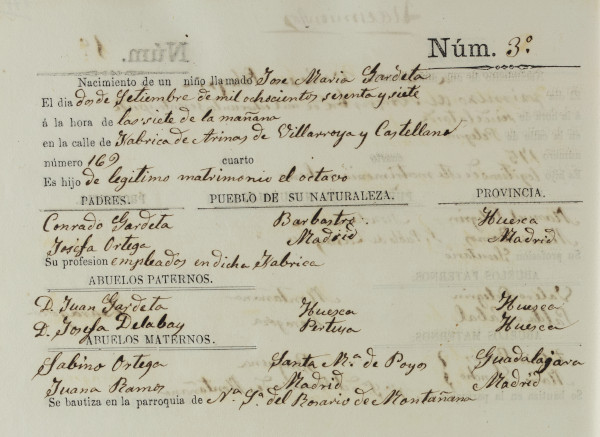 Núm. 3.º
Nacimiento de un niño llamado Jose Maria Gardeta
El dia dos de Setiembre de mil ochocientos sesenta y siete
á la hora de las siete de la mañana
en la calle de Fabrica de Arinas de Villarroya y Castellano
número 169 cuarto
Es hijo de legitimo matrimonio el octavo
PADRES. PUEBLO DE SU NATURALEZA. PROVINCIA.
Conrado Gardeta Barbastro Huesca
Josefa Ortega Madrid Madrid
Su profesion empleados en dicha Fabrica
ABUELOS PATERNOS.
D. Juan Gardeta Huesca Huesca
D. Josefa Delabay Pertusa Huesca
ABUELOS MATERNOS.
Sabino Ortega Santa M.ª de Poyos Guadalajara
Juana Ramos Madrid Madrid
Se bautiza en la parroquia de N.ª S.ª del Rosario de Montañana